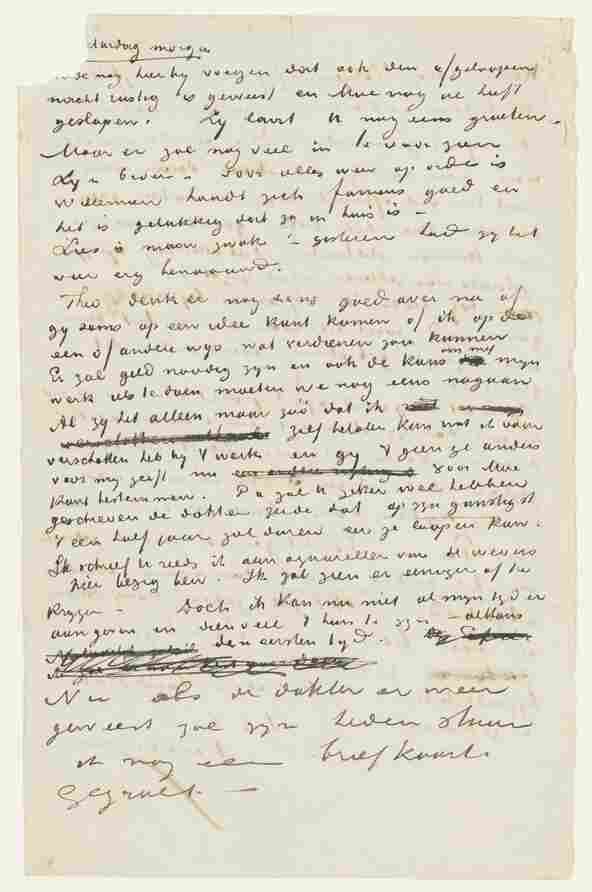 morgen
nog hierby voegen dat ook den afgeloopen
nacht rustig is geweest en Moe nog al heeft
geslapen. Zy laat U nog eens groeten.
Maar er zal nog veel in te voorzien
zyn voor alles weer op orde is
Willemien houdt zich fameus goed en
het is gelukkig dat zy in huis is –
Lies is maar zwak – gisteren had zy het
weer erg benaauwd.
Theo denk er nog eens goed over na of
gy soms op een idee kunt komen of ik op de
een of andere wys wat verdienen zou kunnen
Er zal geld noodig zyn en ook de kans om my
werk iets te doen moeten we nog eens nagaan
Al zy het alleen maar zóó dat ik
zelf betalen kan wat ik vaar
verschotten heb by 't werk en gy 't geen ge anders
voor my geeft nu voor Moe
kunt bestemmen. Pa zal U zeker wel hebben
geschreven de dokter zeide dat op zyn gunstigst
't een half jaar zal duren eer ze loopen kan.
Ik schreef U reeds ik aan aquarellen van de wevers
hier bezig ben. Ik zal zien er eenigen af te
krygen – Doch ik kan nu niet al myn tyd er
aan geven en dien veel t'huis te zyn – althans
den eersten tyd.
Nu als de dokter er weer
geweest zal zyn heden stuur
ik nog een briefkaart.
Gegroet –